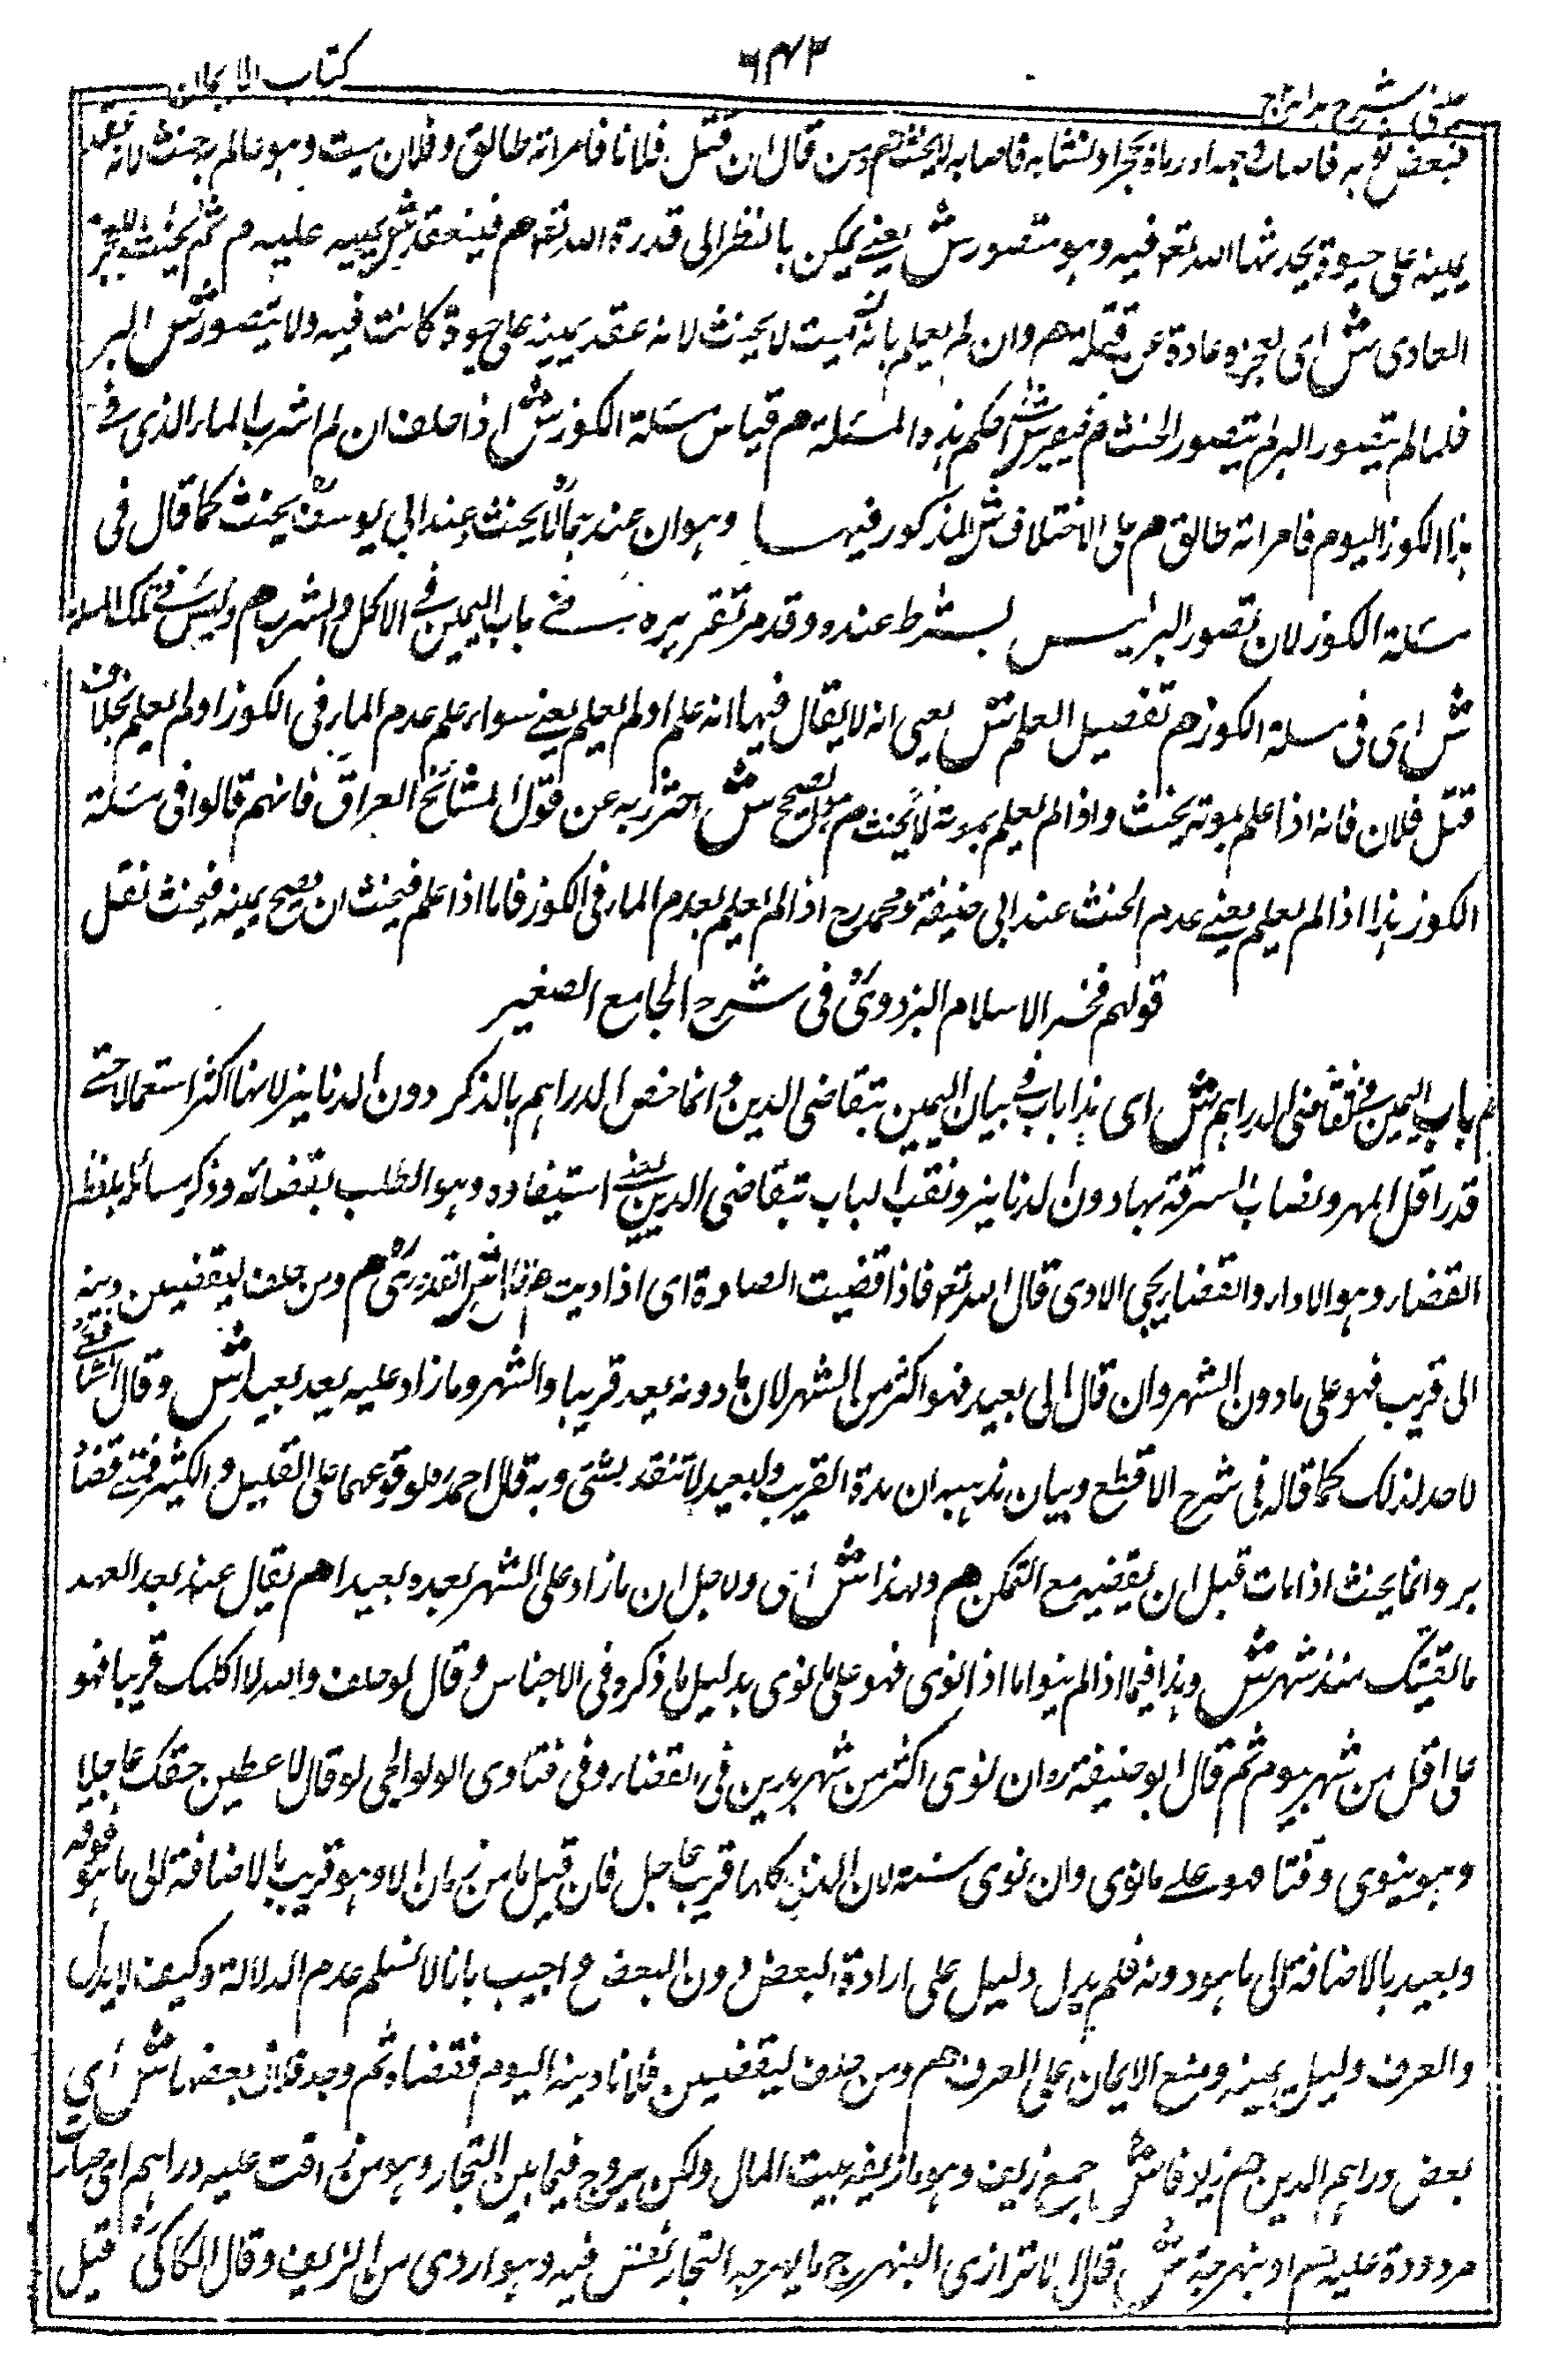 كتاب الايمان
٦٤٢
عيني شرح هداية ج
يمينه على حيوة يحدثها الله تعه فيه وهو متصور ش يعنے يمكن بالنظر الى قدرة الله تعه هم فينعقد ش يمينه عليه م ثم يحنث للعجز
العادى ش اى لعجزه عادة عن قتله هم وان لم يعلم بانه ميت لا يحنث لانه عقد يمينه على حيوة كانت فيه ولا يتصور ش البر
فلما لم يتصور البر لم يتصور الحنث م فيصير ش حكم هذه المسئلة هم قياس مسئلة الكوز ش اذا حلف ان لم اشرب الماء الذى فے
هذا الكوز اليوم فامراته طالق هم على الاختلاف ش المذكور فيها وهو ان عندهما لا يحنث وعند ابى يوسف يحنث كما قال فى
مسئلة الكوز لان تصور البر ليس بشرط عنده وقد مر تقريره فے باب اليمين فے الاكل والشرب هم وليس فے تلك المسئلة
ش اى فى مسئلة الكوز هم تفصيل العلم ش يعنى انه لا يقال فيها انه علم او لم يعلم يعنے سواء علم عدم الماء فى الكوز او لم يعلم بخلاف
قتل فلان فانه اذا علم بموته يحنث واذا لم يعلم بموته لا يحنث م هو الصحيح ش احترز به عن قول المشائخ العراق فانهم قالوا فى مسئلة
الكوز هذا اذا لم يعلم يعنے عدم الحنث عند ابى حنيفة ومحمد رح اذا لم يعلم بعدم الماء فى الكوز فاما اذا علم فيحنث ان يصح يمينه فيحنث نقل
قولهم فخر الاسلام البزدوى فى شرح الجامع الصغير
هم باب اليمين فے تقاضى الدراهم ش اى هذا باب فے بيان اليمين بتقاضى الدين وانما خص الدراهم بالذكر دون الدنانيز لانها اكثر استعمالا حتے
قدر اقل المهر ونصاب السرقة بها دون الدنانيز ولقب الباب بتقاضى الدين يعنے استيفاده وهو الطلب بقضائه وذكر مسائله بلفظ
القضاء وهو الاداء والقضاء يجى الادى قال الله تعه فاذا قضيت الصلوة اى اذا اديت هم قال ش القدورى هم ومن حلف ليقضين دينه
الى قريب فهو على ما دون الشهر وان قال الى بعيد فهو اكثر من الشهر لان ما دونه يعد قريبا والشهر وما زاد عليه يعد بعيدا ش وقال الشافعے
لا حد لذلك كما قاله فى شرح الاقطع وبيان مذهبه ان مدة القريب والبعيد لا تنقد بشئ وبه قال احمد فلو قوعهما على القليل والكثير فمتے قضاه
بر وانما يحنث اذا مات قبل ان يقضيه مع التمكن هم ولهذا ش اى ولاجل ان ما زاد على الشهر يعد بعيدا هم يقال عند بعد العهد
ما لقيتك منذ شهر ش وهذا فيما اذا لم ينوا ما اذا نوى فهو على ما نوى بدليل ما ذكره فى الاجناس وقال لو حلف والله لا اكلمك قريبا فهو
على اقل من شهر بيوم ثم قال ابو حنيفة وان نوى اكثر من شهر يدين فى القضاء وفى فتاوى الولوالجى لو قال لاعطين حقك عاجلا
وهو ينوى وقتا فهو علے ما نوى وان نوى سنة لان الدنيا كلها قريب عاجل فان قيل ما من زمان الا وهو قريب بالاضافة الى ما هو فوقه
وبعيد بالاضافة الى ما هو دونه فلم يدل دليل على ارادة البعض دون البعض واجيب بانا لا نسلم عدم الدلالة وكيف لا يدل
والعرف دليل يمينه ومنع الايمان على العرف هم ومن حلف ليقضين فلانا دينه اليوم فقضاه ثم وجد فلان بعضها ش اى
بعض دراهم الدين هم زيوفا ش جمع زيف وهو ما زيفه بيت المال ولكن يروج فيما بين التجار وهو من زافت عليه دراهم اى صارت
مردودة عليه هم او بنهرجة ش قال الاترازى البنهرج ما يبهرجه التجار لغش فيه وهو اردى من الزيف وقال الكاكى قيل